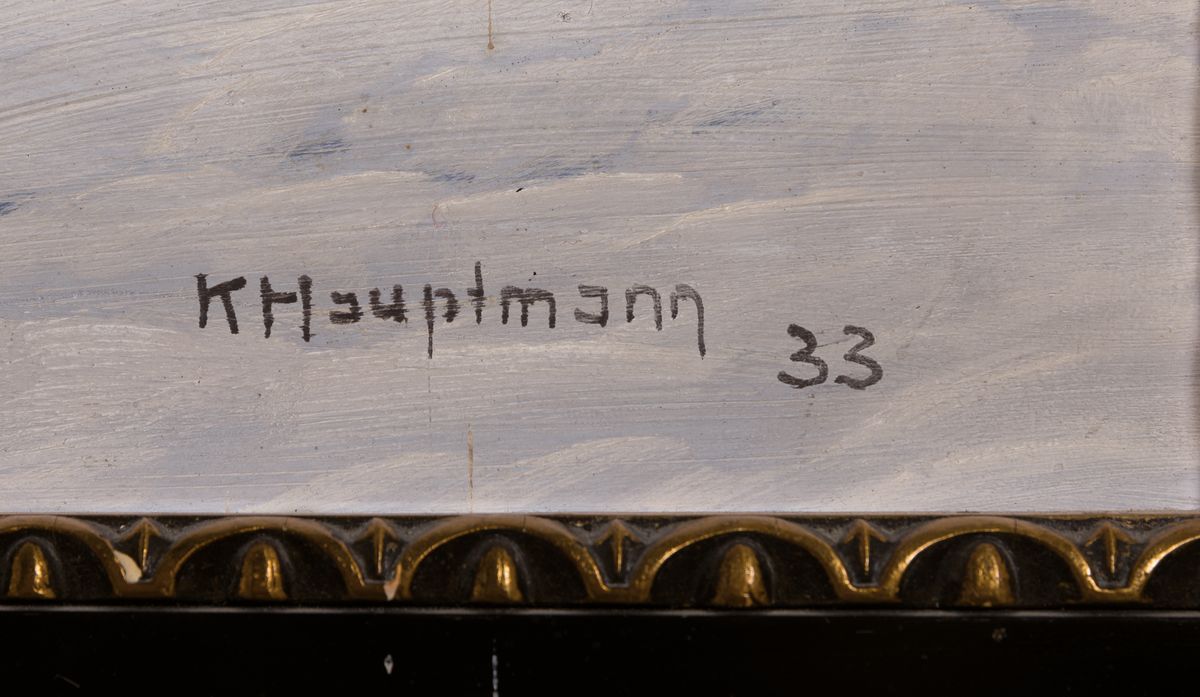 K Hauptmann
33